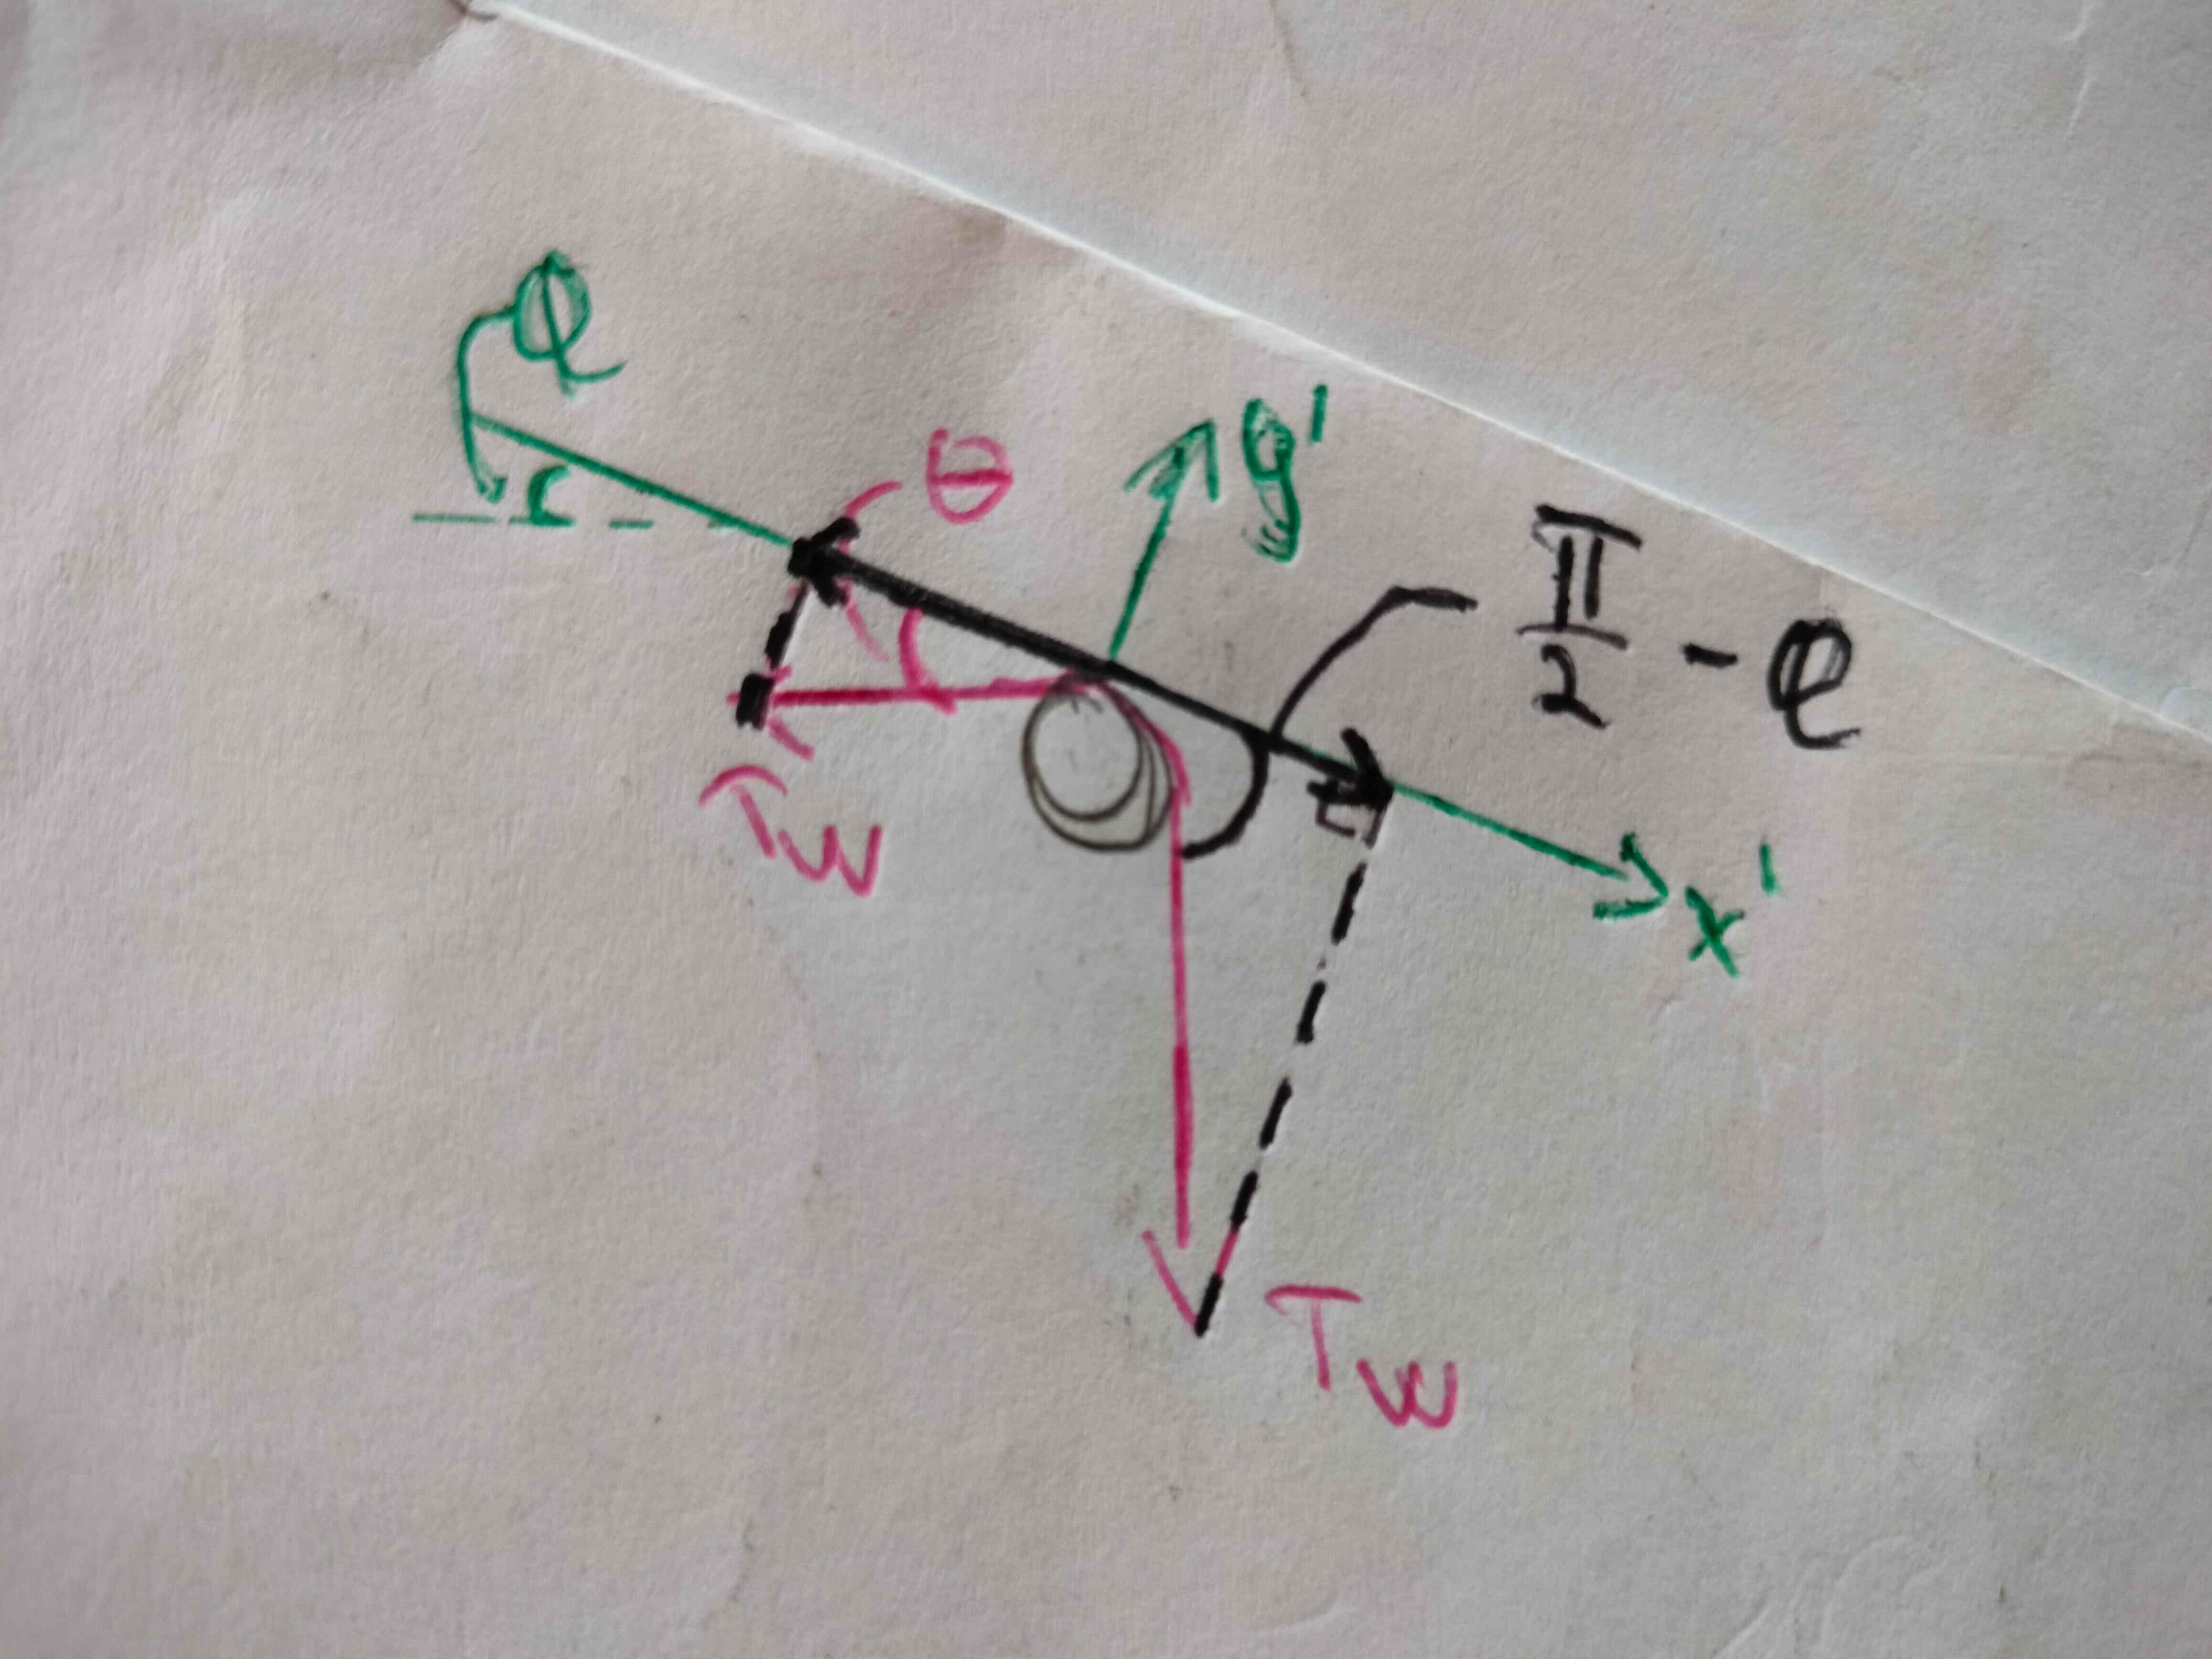 φ
θ
y'
π/2 - φ
T_W
x'
T_W